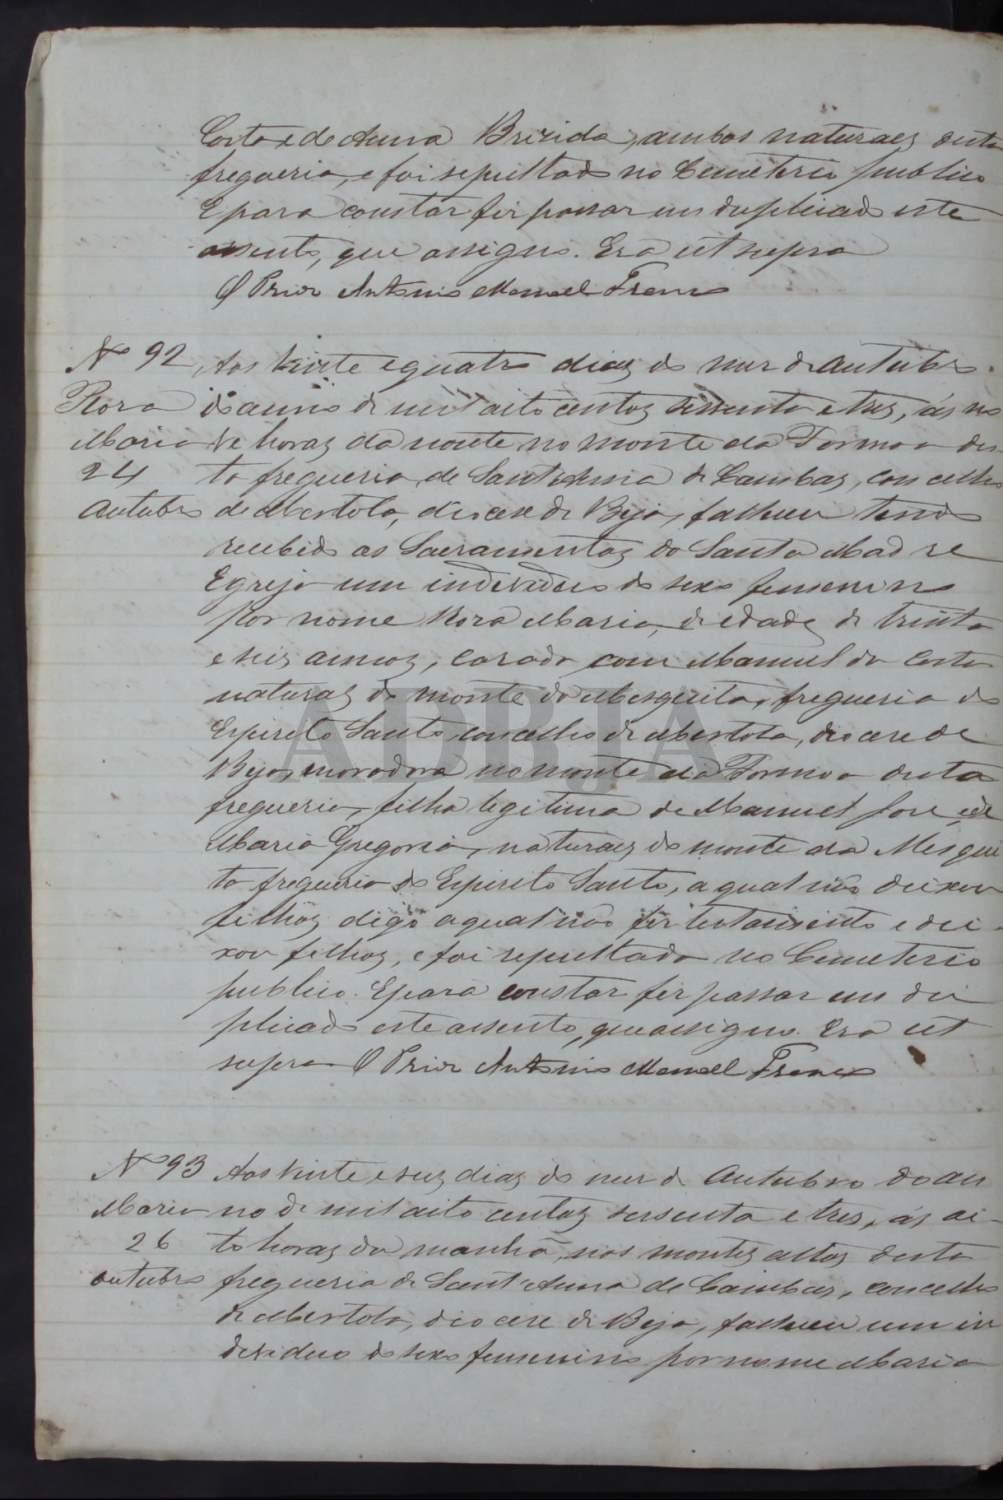 Costa e de Anna Brizida, ambos naturaes desta
freguezia, e foi sepultado no Cemeterio publico
E para constar fiz passar um duplicado este
assento, que assigno. Era ut supra
O Prior Antonio Manoel Franco
Nº 92 Aos vinte e quatro dias do mez de Outubro
Rosa do anno de mil oito centos sessenta e tres, ás no
Maria ve horas da noute no monte da Formoa des
24 ta freguezia de Sant'Anna de Cambas, concelho
Outubro de Mertola, diocese de Beja, falleceu tendo
recebido os Sacramentos da Santa Madre
Egreja um individuo do sexo femenino
por nome Roza Maria, de edade de trinta
e seis annos, cazada com Manuel da Costa
natural do monte da Mesquita, freguezia do
Espirito Santo, concelho de Mertola, diocese de
Beja, moradora no monte da Formoa desta
freguezia, filha legitima de Manuel Jose, e de
Maria Gregoria, naturaes do monte da Mesqui
ta freguezia do Espirito Santo, a qual não deixou
filhos digo a qual não fez testamento e dei-
xou filhos, e foi sepultada no Cemeterio
publico. E para constar fiz passar em du
plicado este assento, que assigno. Era ut
supra O Prior Antonio Manoel Franco
Nº 93 Aos vinte e seis dias do mez de Outubro do an
Maria no de mil oito centos sessenta e tres, ás oi-
26 to horas da manhã, nos montes altos desta
Outubro freguezia de Sant'Anna de Cambas, concelho
de Mertola, diocese de Beja, falleceu um in
dividuo do sexo femenino por nome Maria
ADBJA